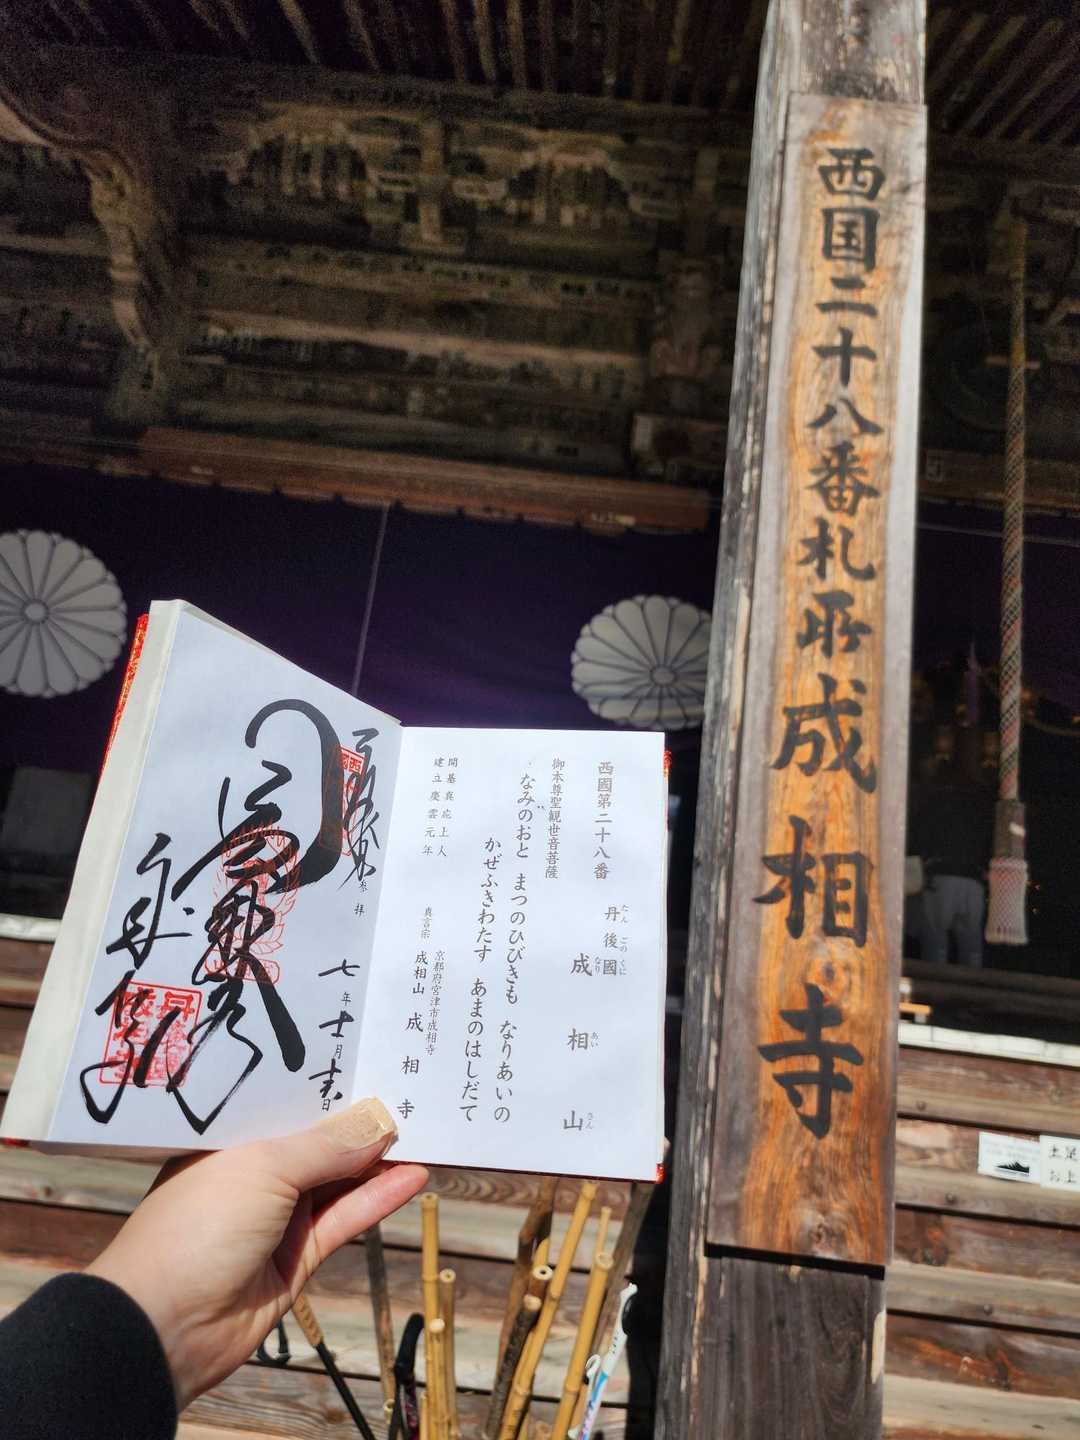 西国二十八番札所成相寺
西國第二十八番
丹後國
たんごのくに
成相山
なりあいさん
御本尊聖観世音菩薩
なみのおと まつのひびきも なりあいの
かぜふきわたす あまのはしだて
開基真応上人
建立慶雲元年
京都府宮津市成相寺
真言宗 成相山 成相寺
参拝
七年十一月
日
土足
お上